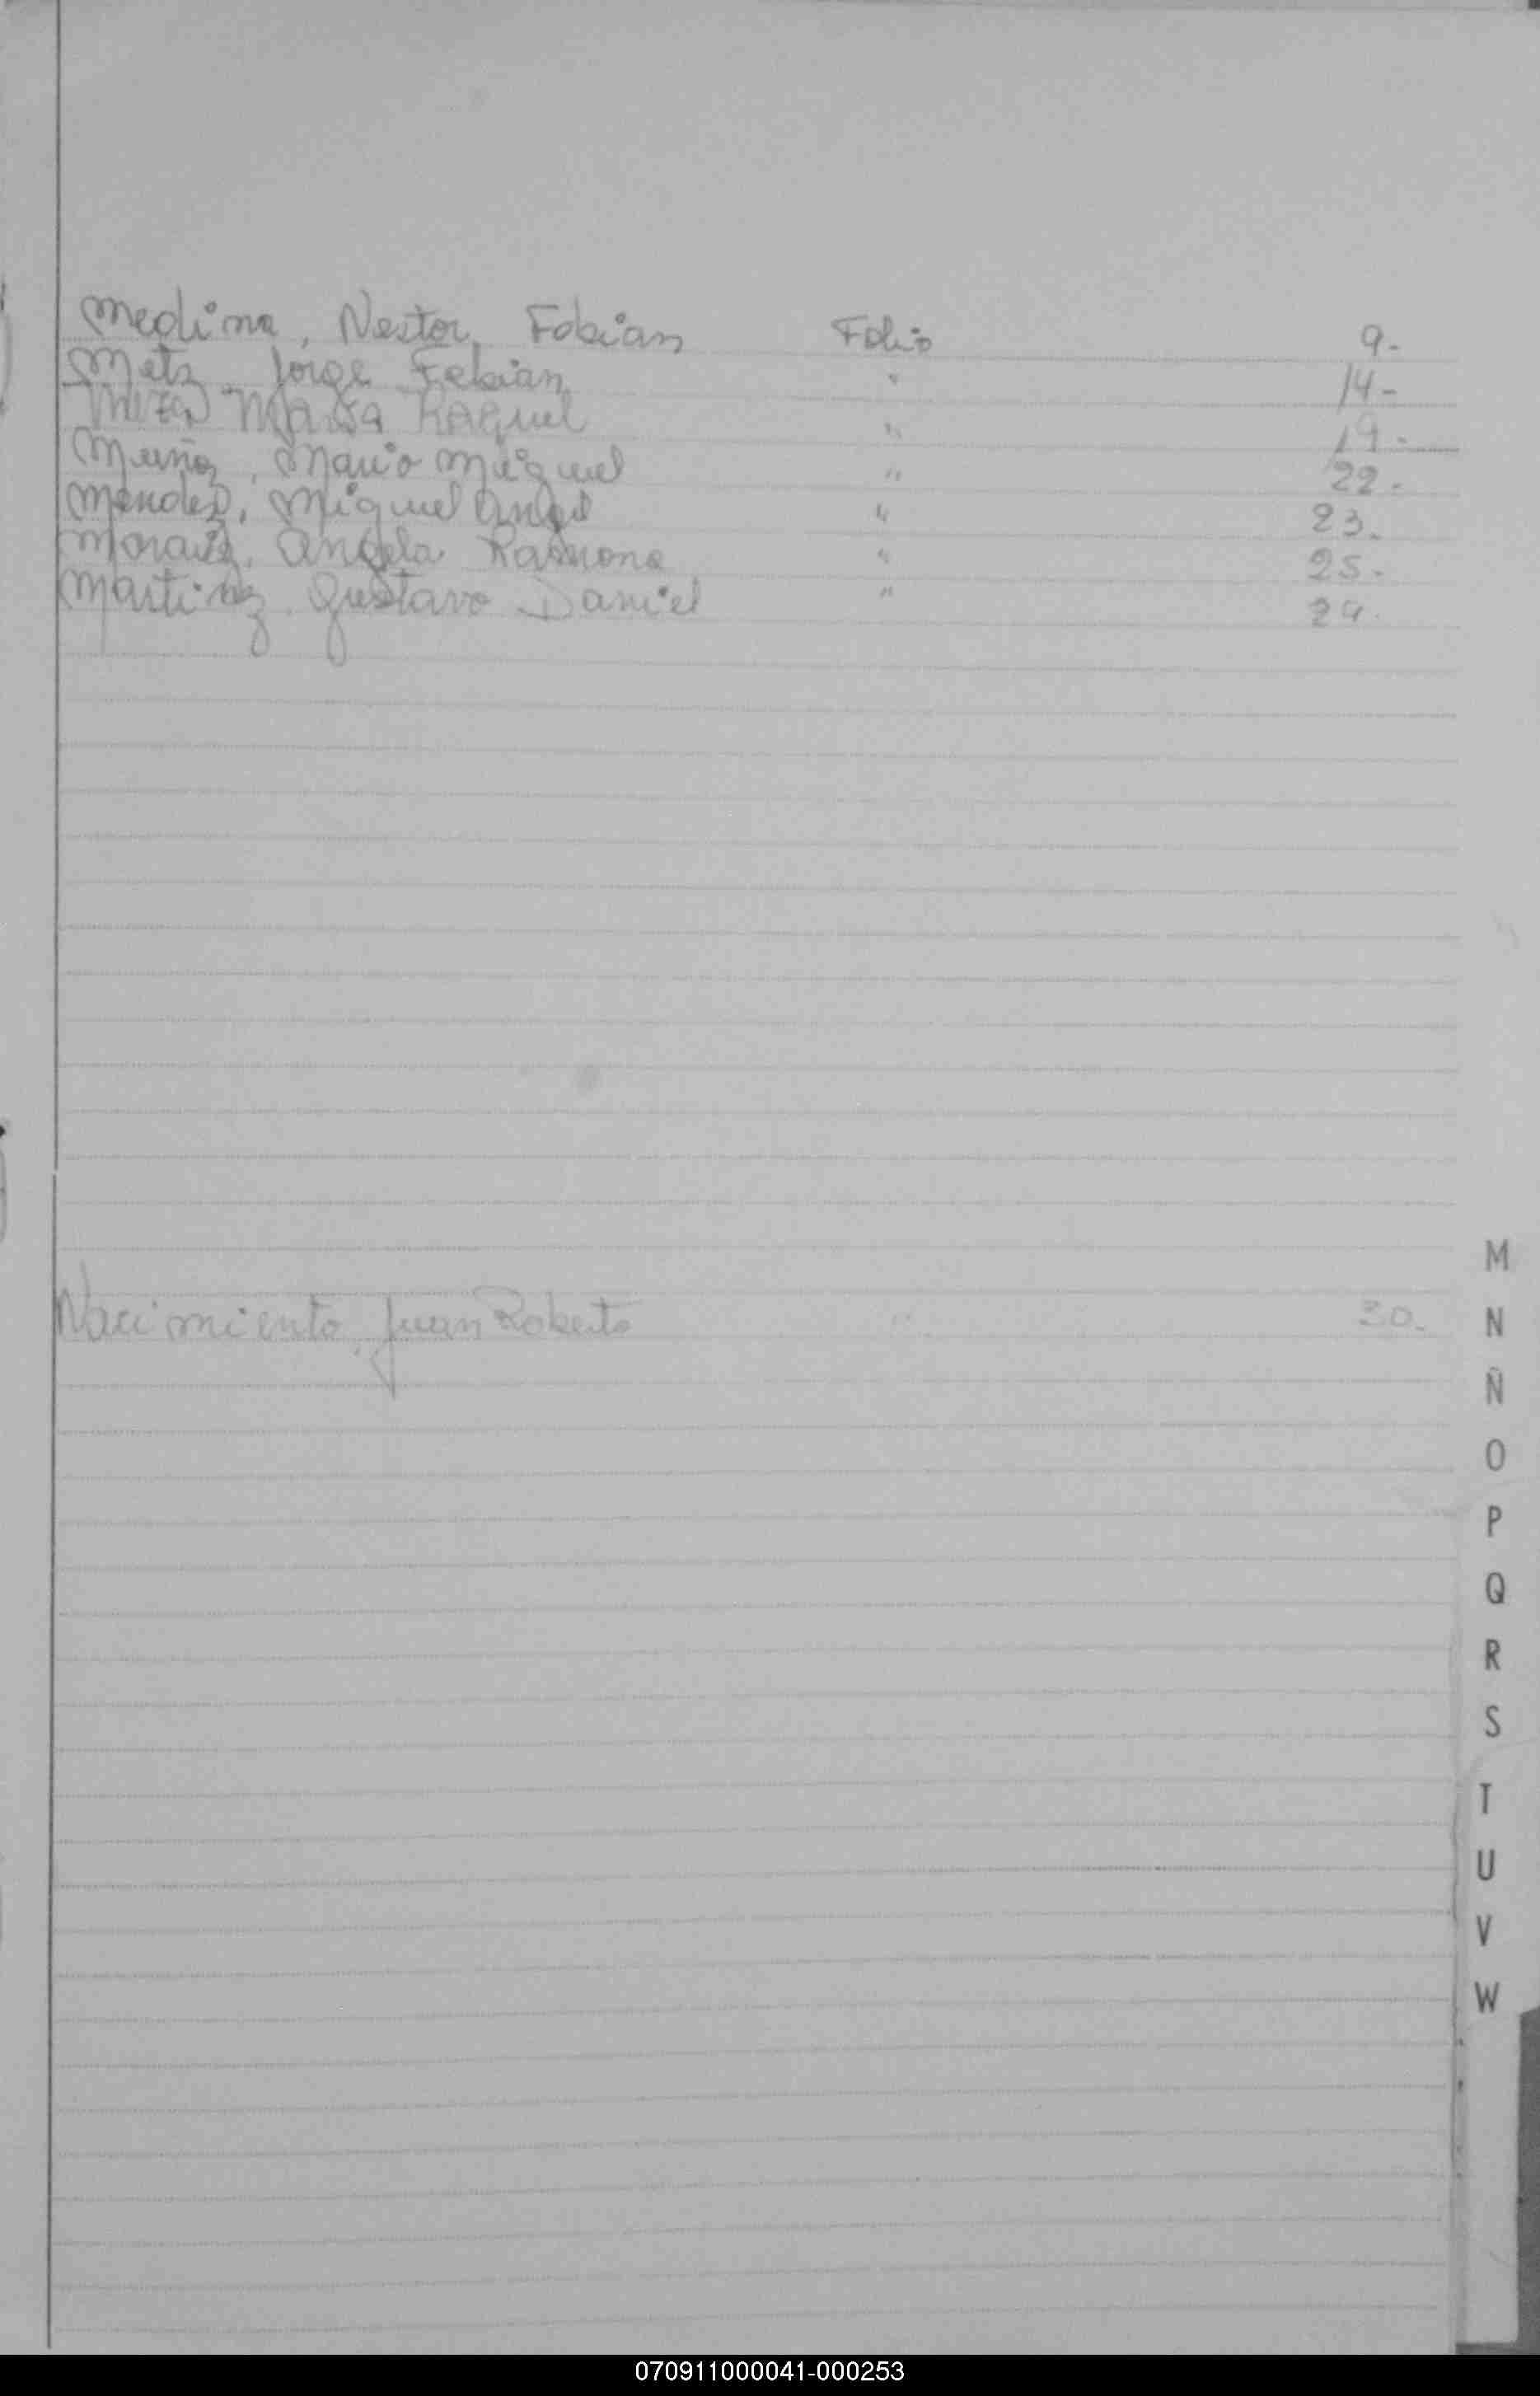 Medina, Nestor Fabian Folio 9.-
Metz Jorge Fabian " 14-
Maria Raquel " 19.-
Muñoz, Mario Miguel " 22.-
Mendez, Miguel Angel " 23.
Angela Ramona " 25.-
Martinez Gustavo Daniel " 29.
Nacimiento, Juan Roberto " 30.-
M
N
Ñ
O
P
Q
R
S
T
U
V
W
070911000041-000253